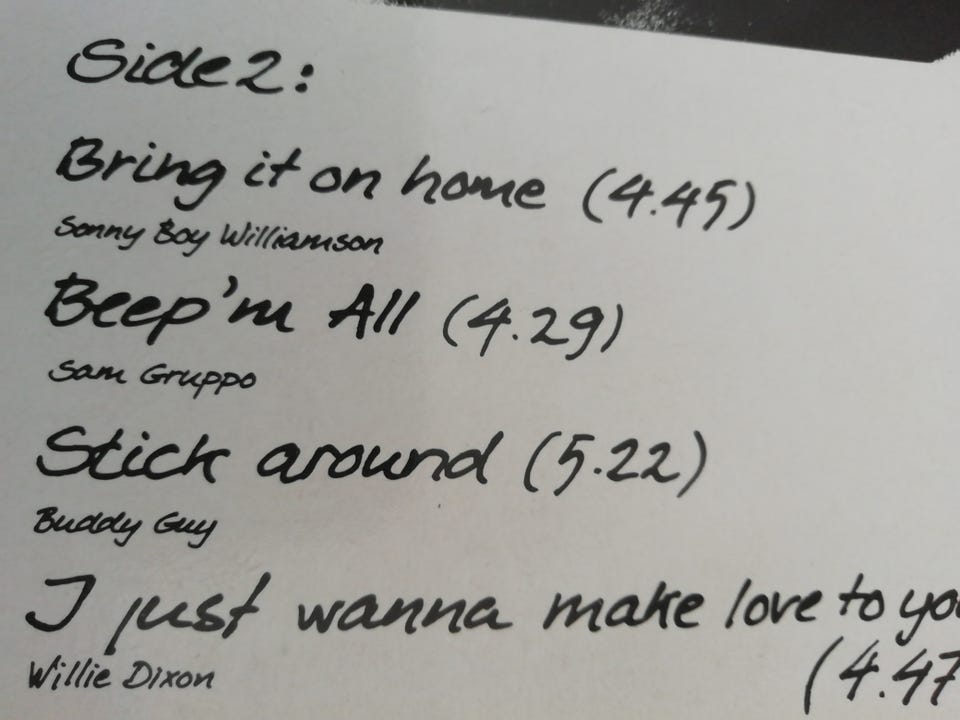 Side 2:
Bring it on home (4.45)
Sonny Boy Williamson
Beep'm All (4.29)
Sam Gruppo
Stick around (5.22)
Buddy Guy
I just wanna make love to yo
(4.47
Willie Dixon